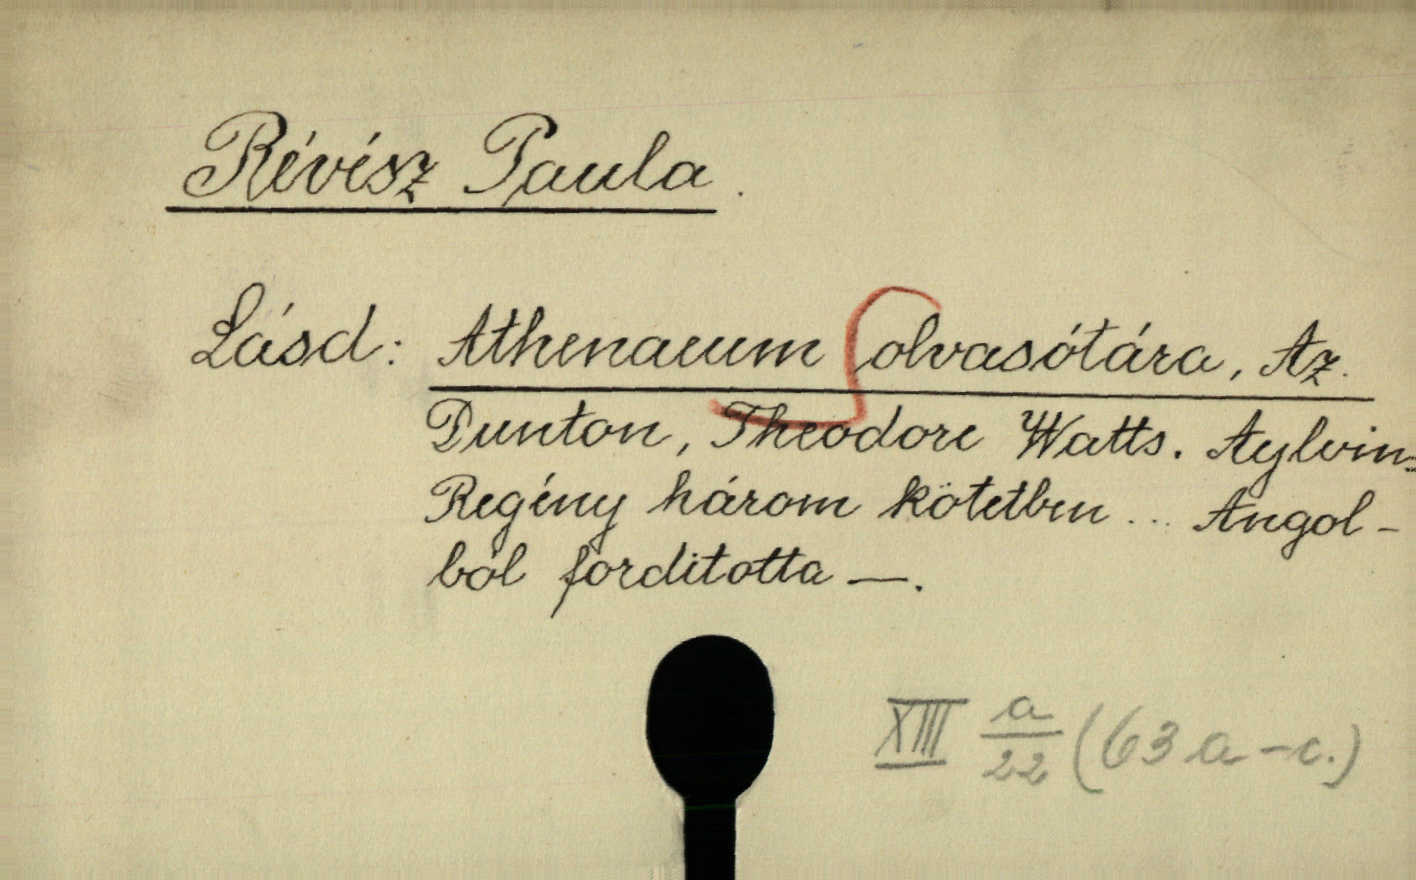 Révész Paula.
Lásd: Athenaeum olvasótára, Az.
Dunton, Theodore Watts. Aylvin=
Regény három kötetben ... Angol-
ból forditotta —.
XIII a/22 (63 a-c.)